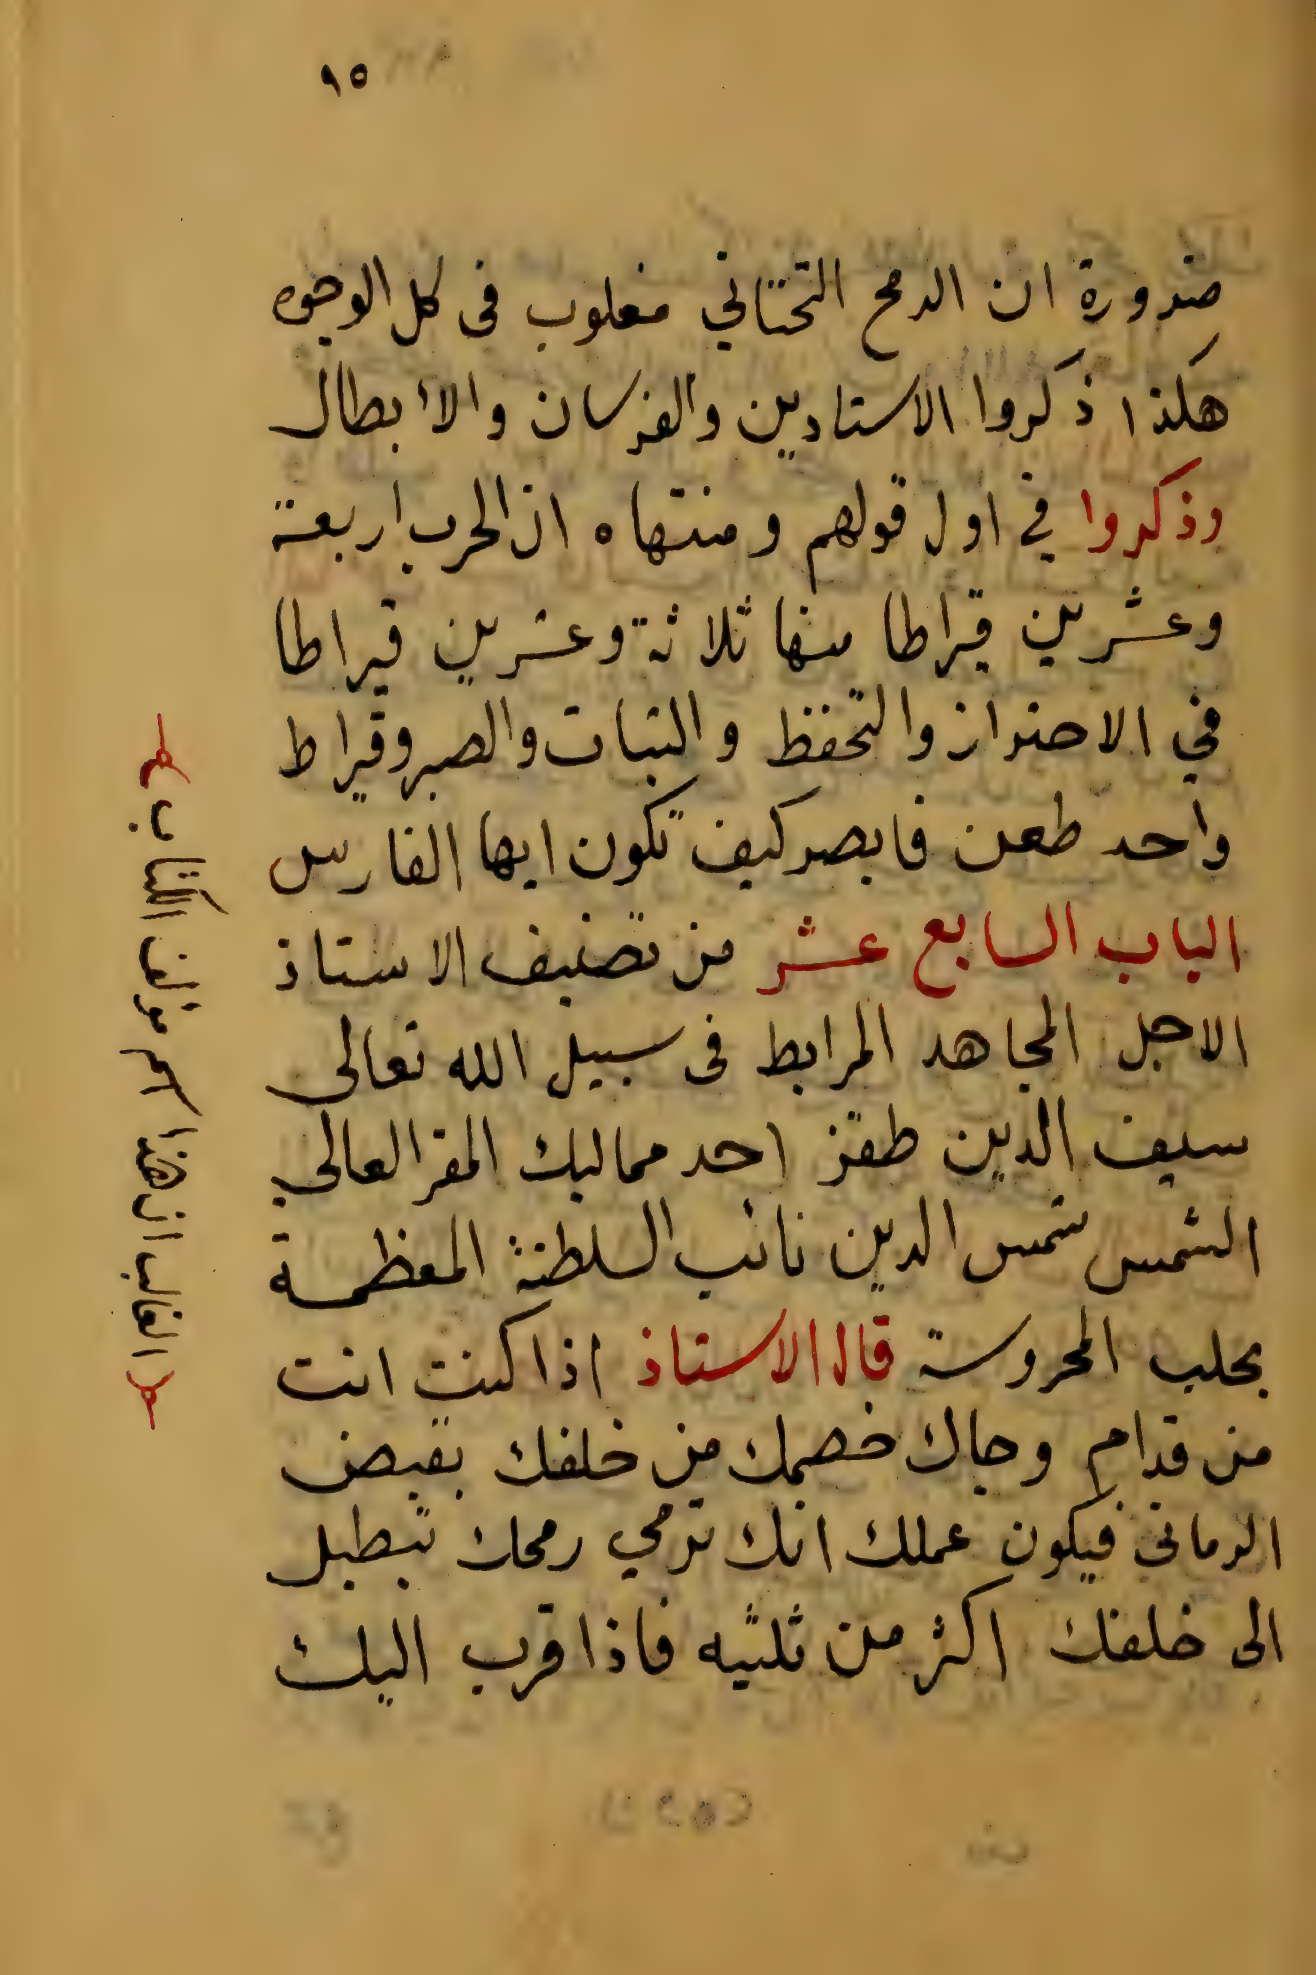 ١٥
ضرورة ان الرمح التحتاني مغلوب فى كل الوجوه
هكذا ذكروا الاستادين والفرسان والابطال
وذكروا في اول قولهم ومنتهاه ان الحرب اربعة
وعشرين قيراطا منها ثلاثة وعشرين قيراطا
في الاحتراز والتحفظ والثبات والصبر وقيراط
واحد طعن فابصر كيف تكون ايها الفارس
الباب السابع عشر من تصنيف الاستاذ
الاجل المجاهد المرابط فى سبيل الله تعالى
سيف الدين طقز احد مماليك المقر العالي
الشمس شمس الدين نائب السلطنة المعظمة
بحلب المحروسة قال الاستاذ اذا كنت انت
من قدام وجاك خصمك من خلفك بقبض
الرماني فيكون عملك انك ترمي رمحك تبطيل
الى خلفك اكثر من ثلثيه فاذا قرب اليك
الغالب ان هذا اسم مؤلف الكتاب